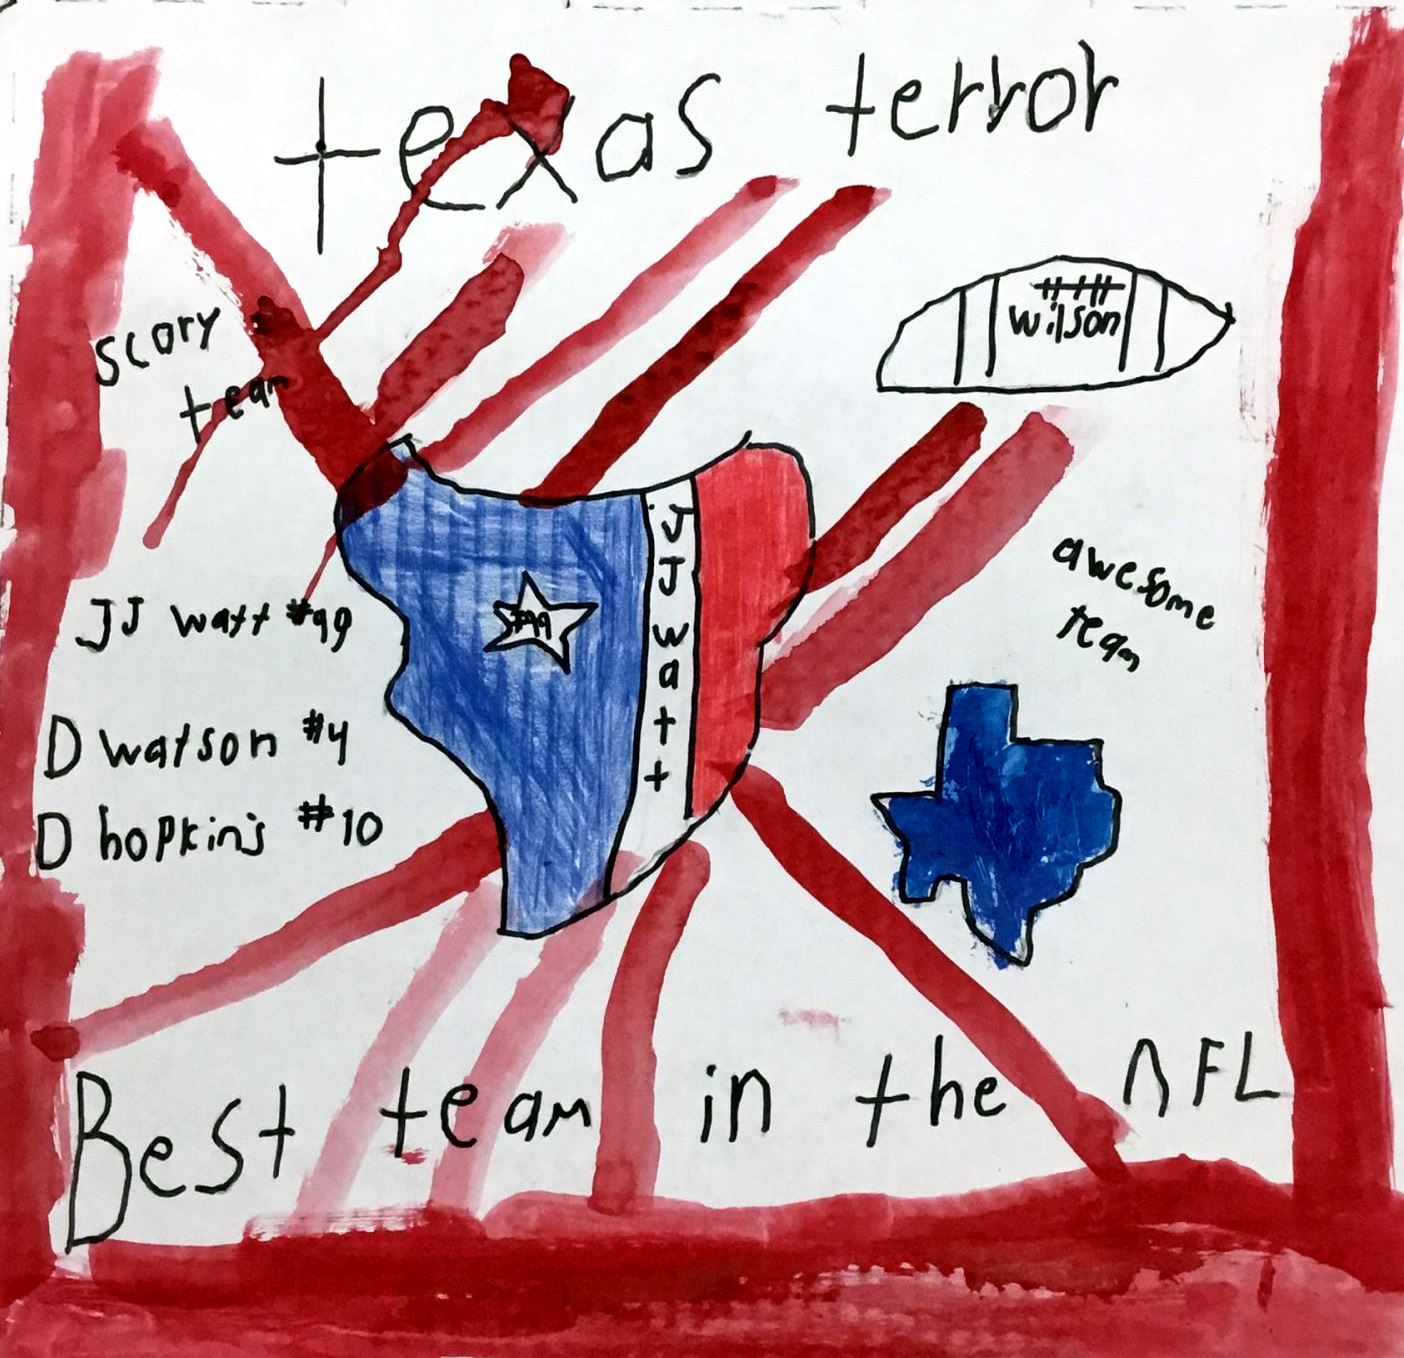 texas terror
wilson
scary
team
JJ watt
#99
awesome
team
JJ watt #99
D watson #4
D hopkin's #10
Best team in the nFL